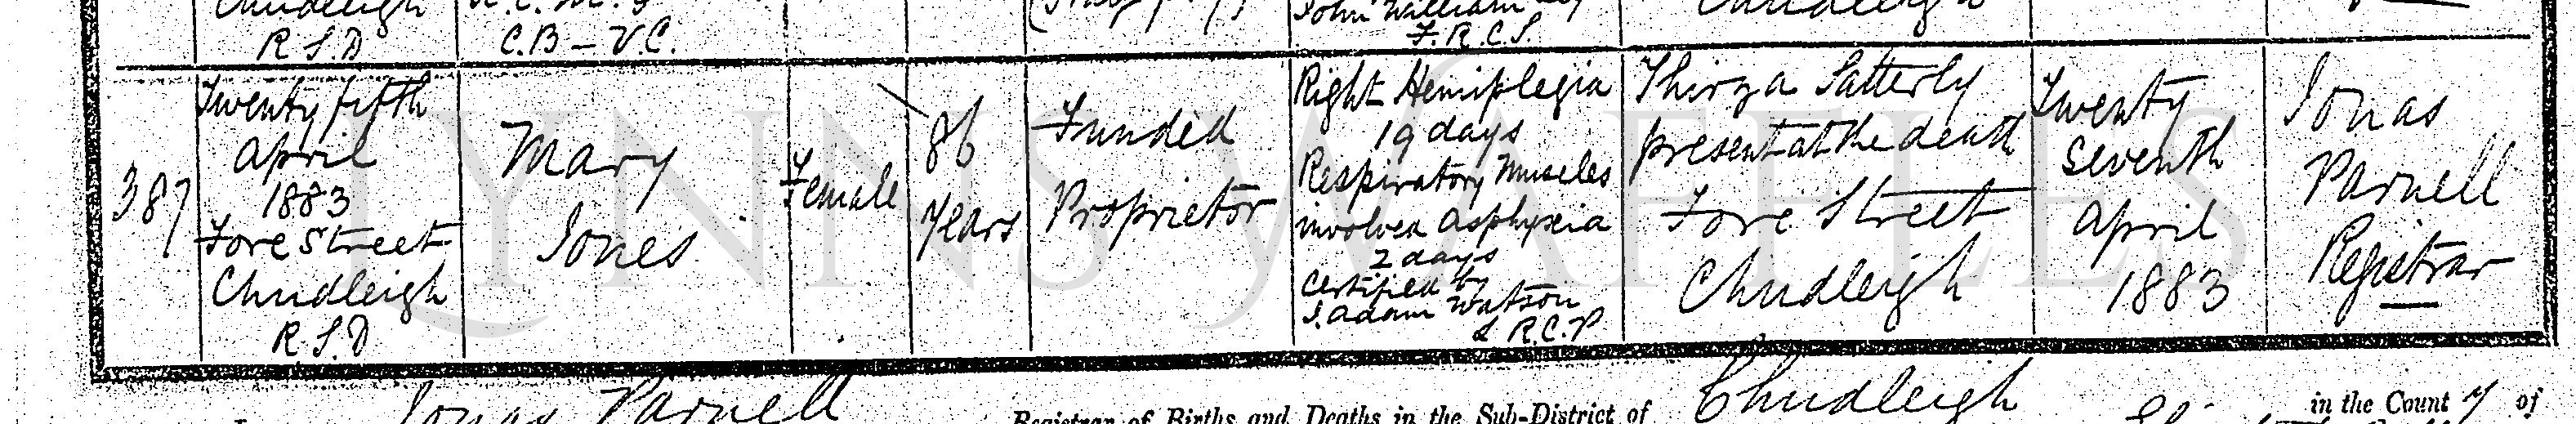 Chudleigh
R S D
C.B – V.C.
John William
F.R.C.S.
Chudleigh
387
Twenty fifth
April
1883
Fore Street
Chudleigh
R.S.D
Mary
Jones
Female
86
Years
Funded
Proprietor
Right Hemiplegia
19 days
Respiratory Muscles
involved Asphyxia
2 days
Certified by
J. Adam Watson
L R.C.P
Thirza Satterly
present at the death
Fore Street
Chudleigh
Twenty
Seventh
April
1883
Jonas
Parnell
Registrar
LYNNS WAFFLES
Jonas Parnell
Registrar of Births and Deaths in the Sub-District of Chudleigh
in the County of